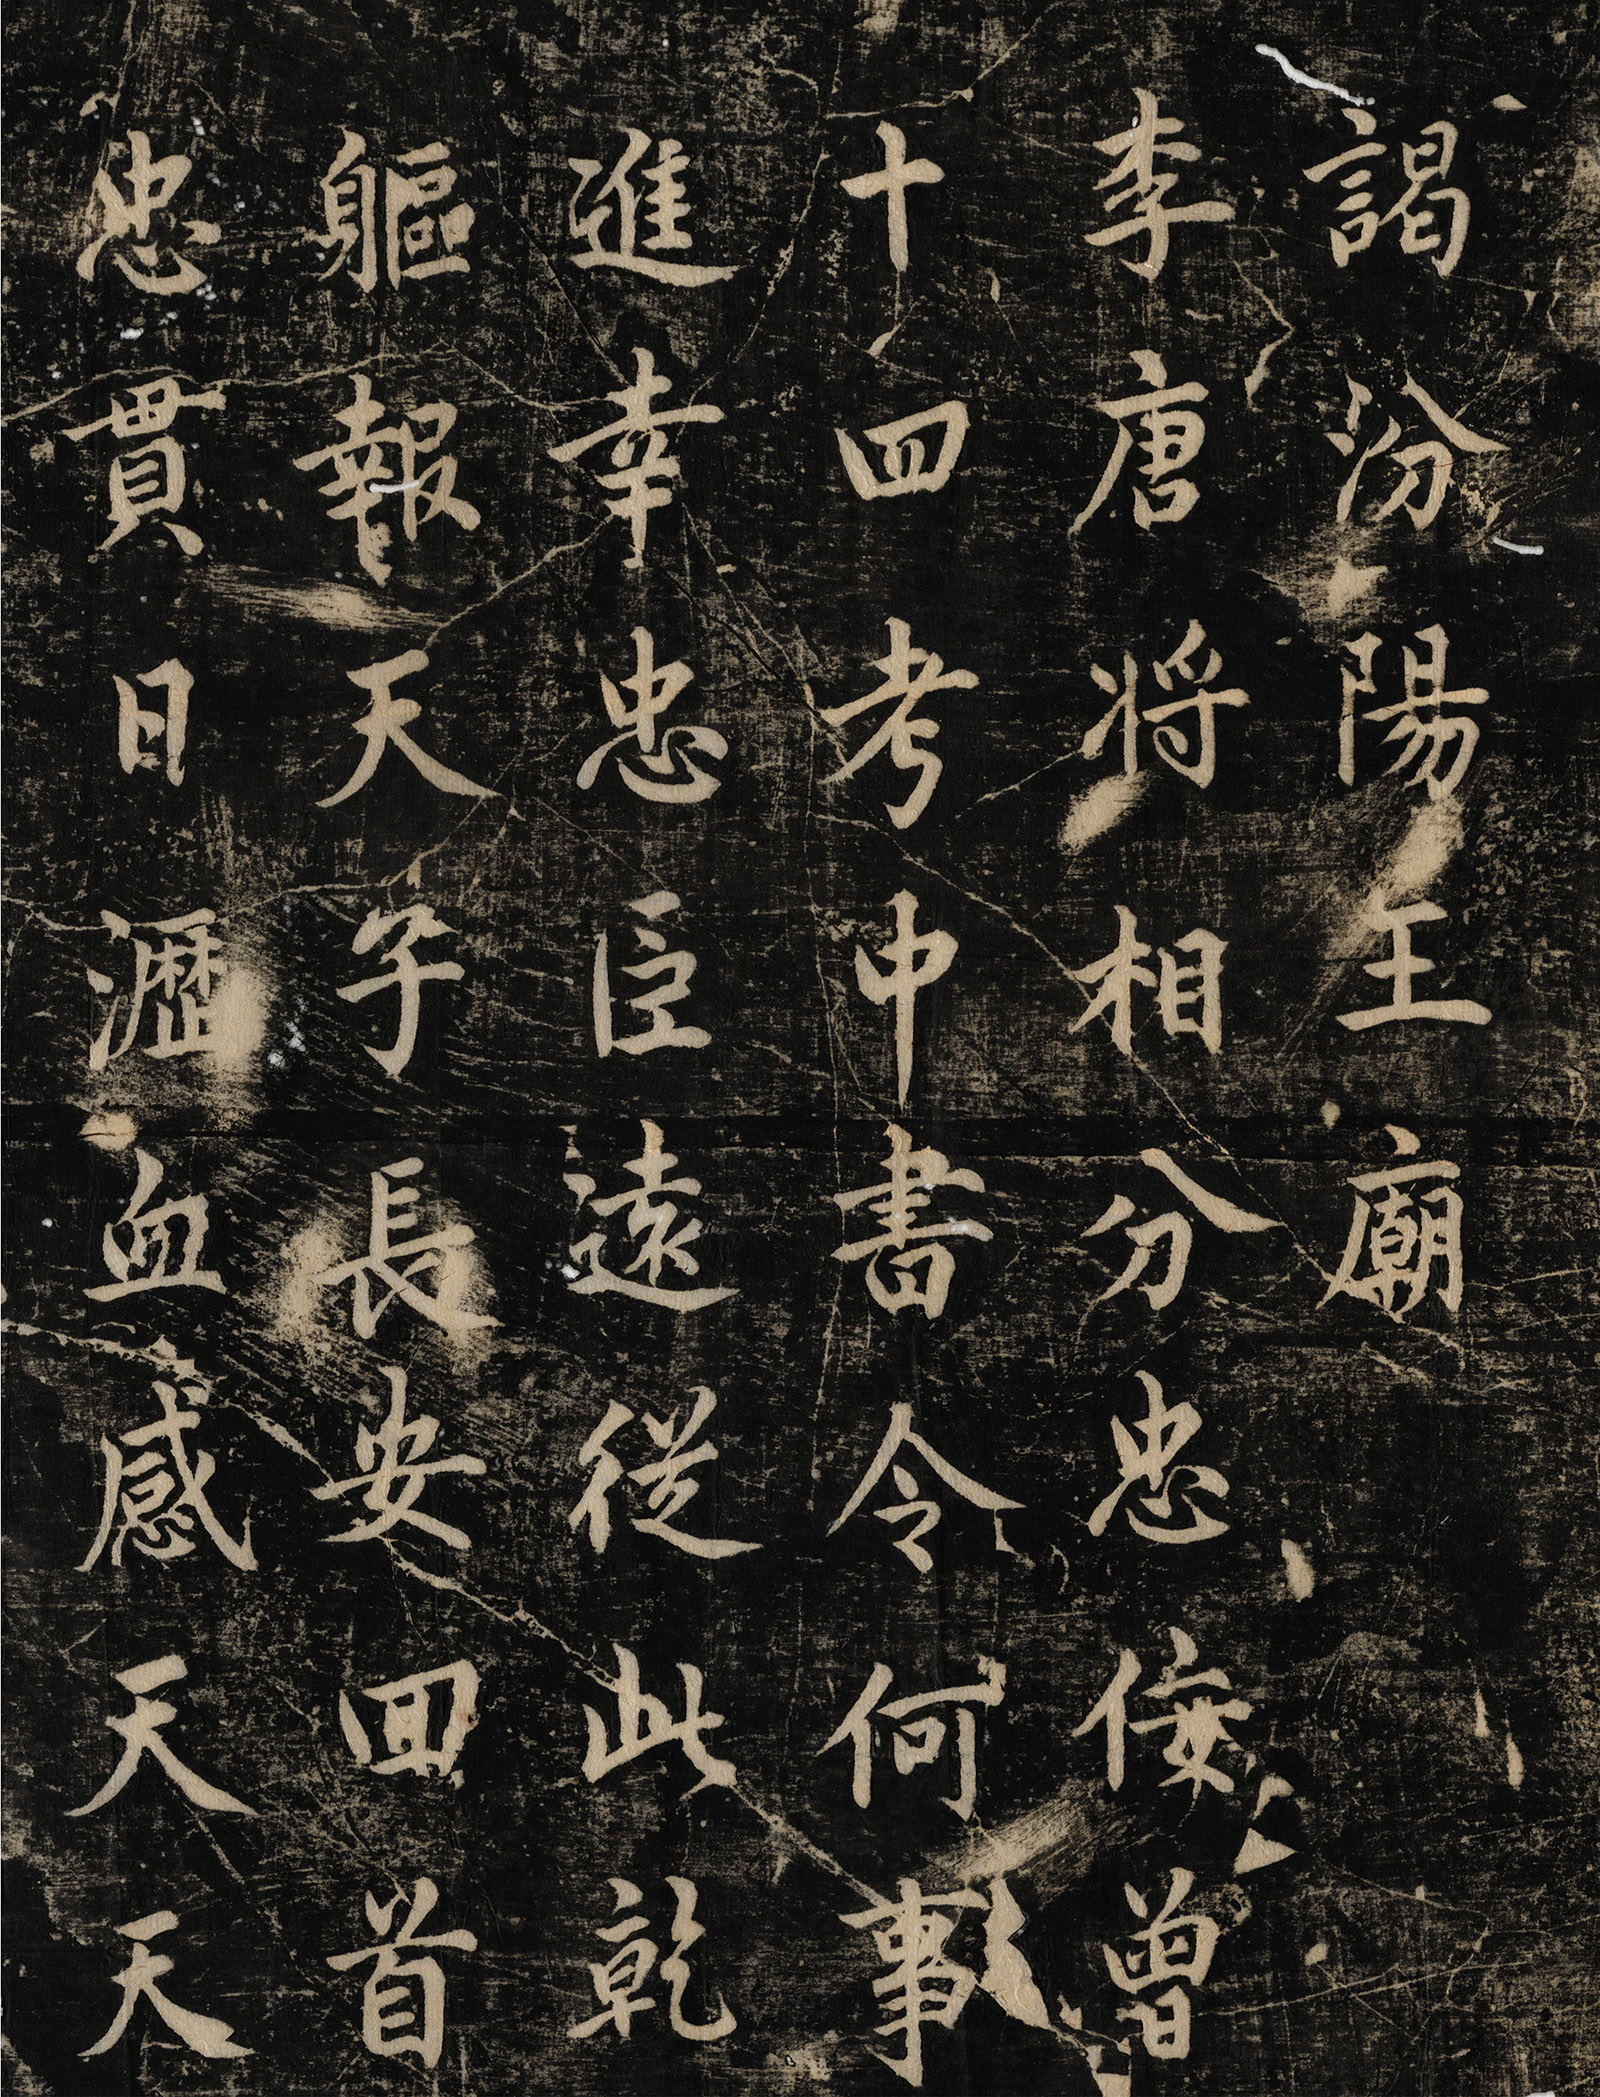 謁汾陽王廟
李唐将相分忠侫曽
十四考中書令何事
進幸忠臣遠従此乾
軀報天子長安回首
忠貫日瀝血感天天